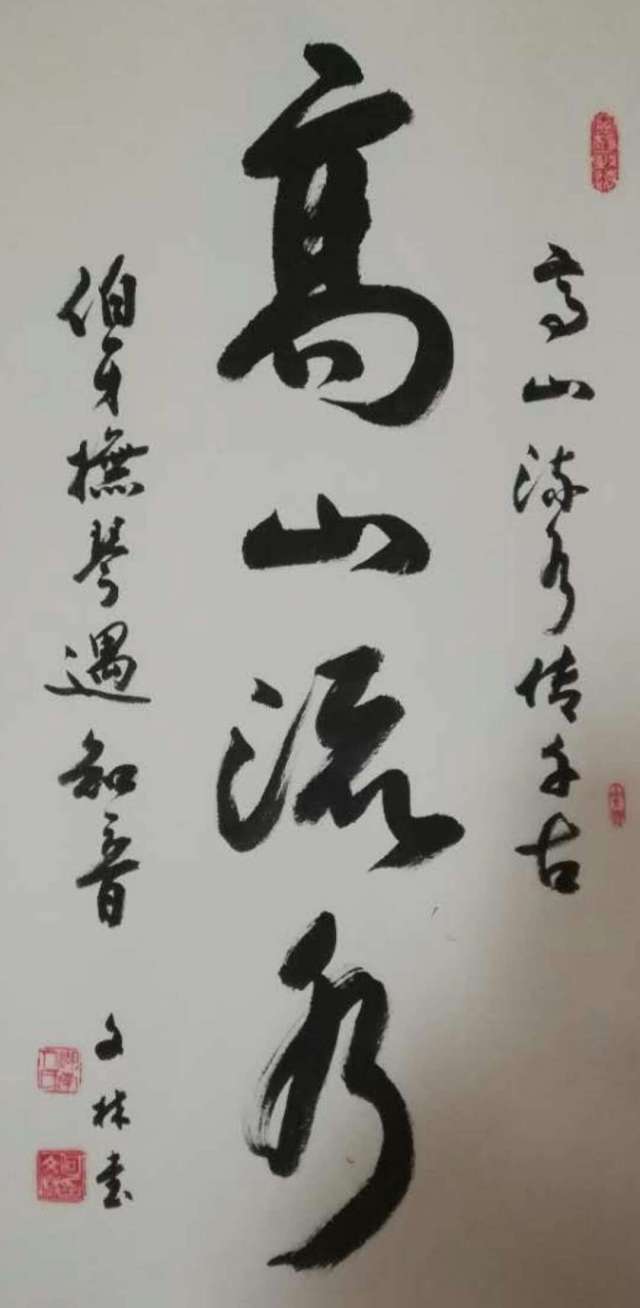 高山流水传千古
高山流水
伯牙撫琴遇知音
文林书